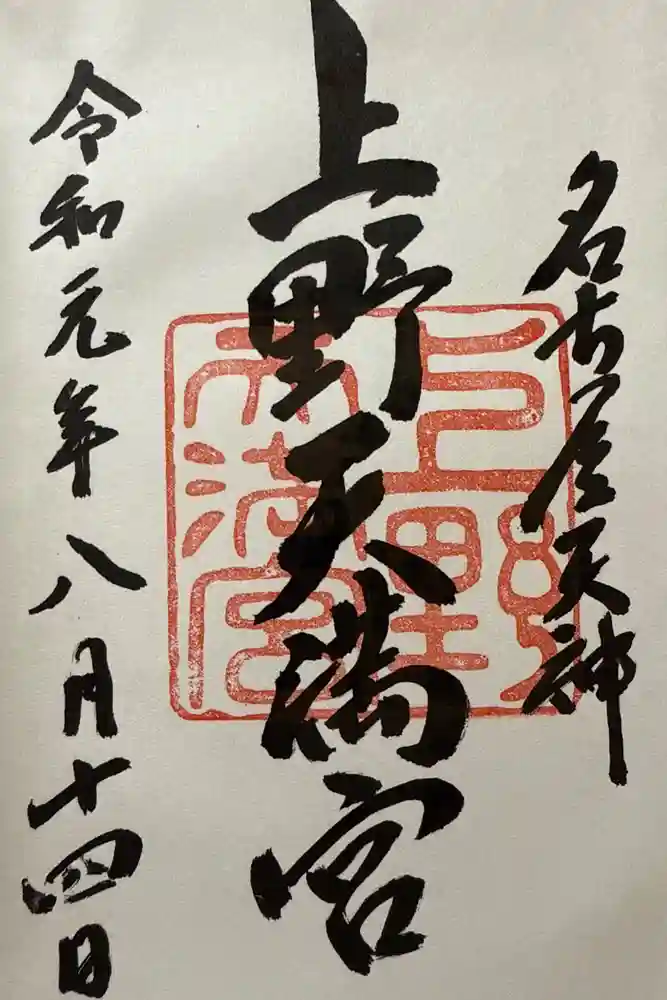 名古屋天神
上野天満宮
令和元年八月十四日
上野天満宮